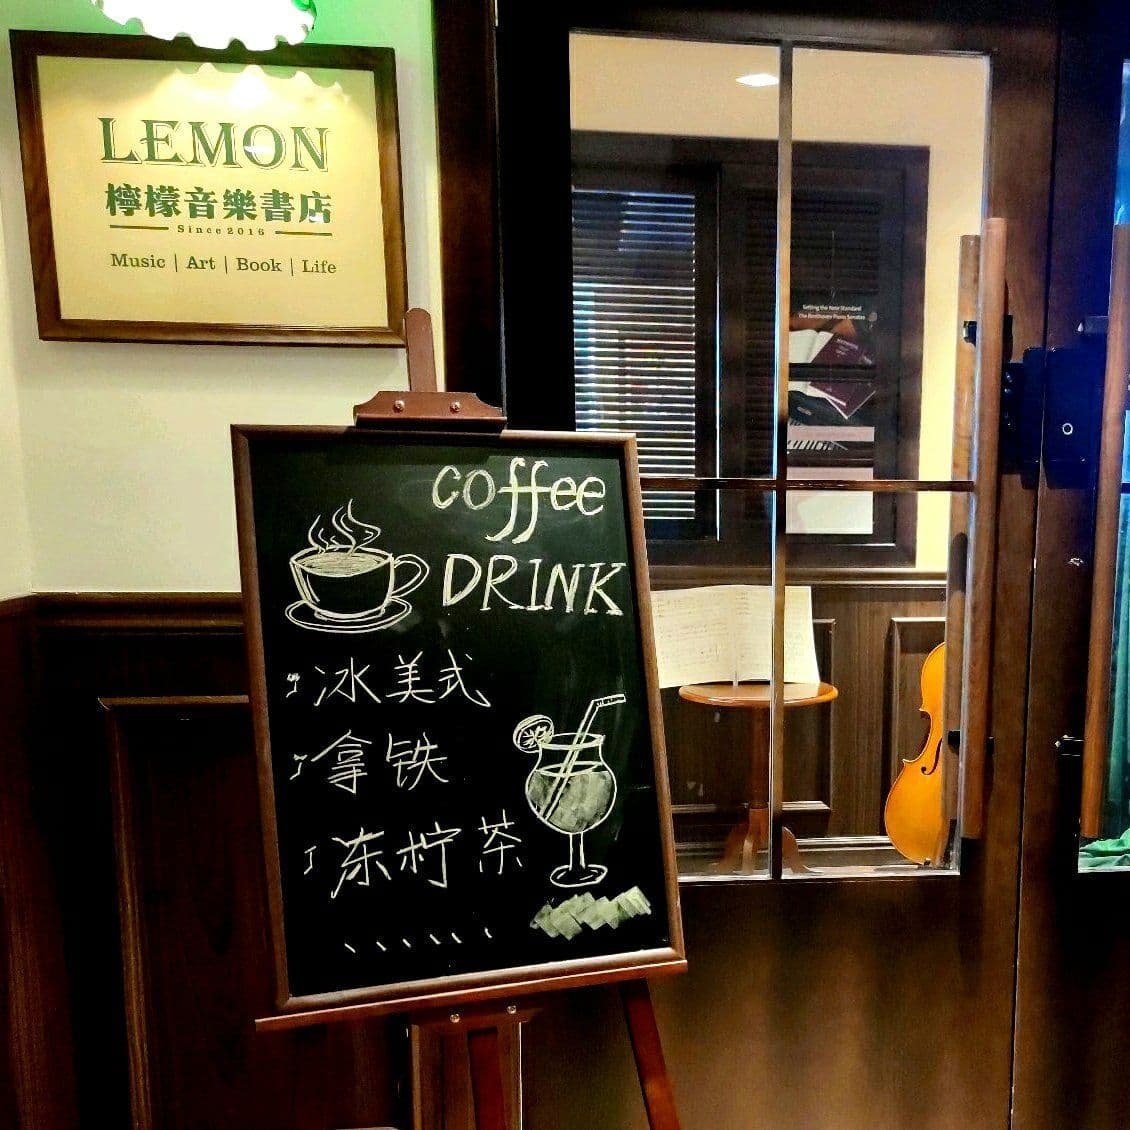 LEMON
檸檬音樂書店
Since 2016
Music | Art | Book | Life
Setting the New Standard
The Beethoven Piano Sonatas
coffee
DRINK
冰美式
拿铁
冻柠茶